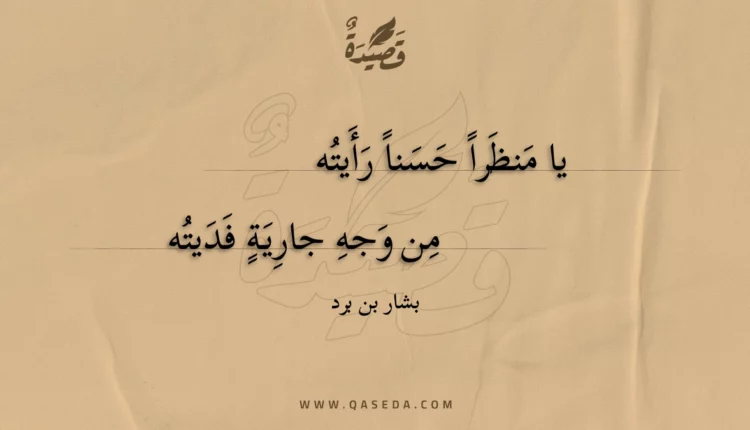 قَصِيدَةٌ
يا مَنظَراً حَسَناً رَأَيتُه
مِن وَجهِ جارِيَةٍ فَدَيتُه
بشار بن برد
WWW.QASEDA.COM